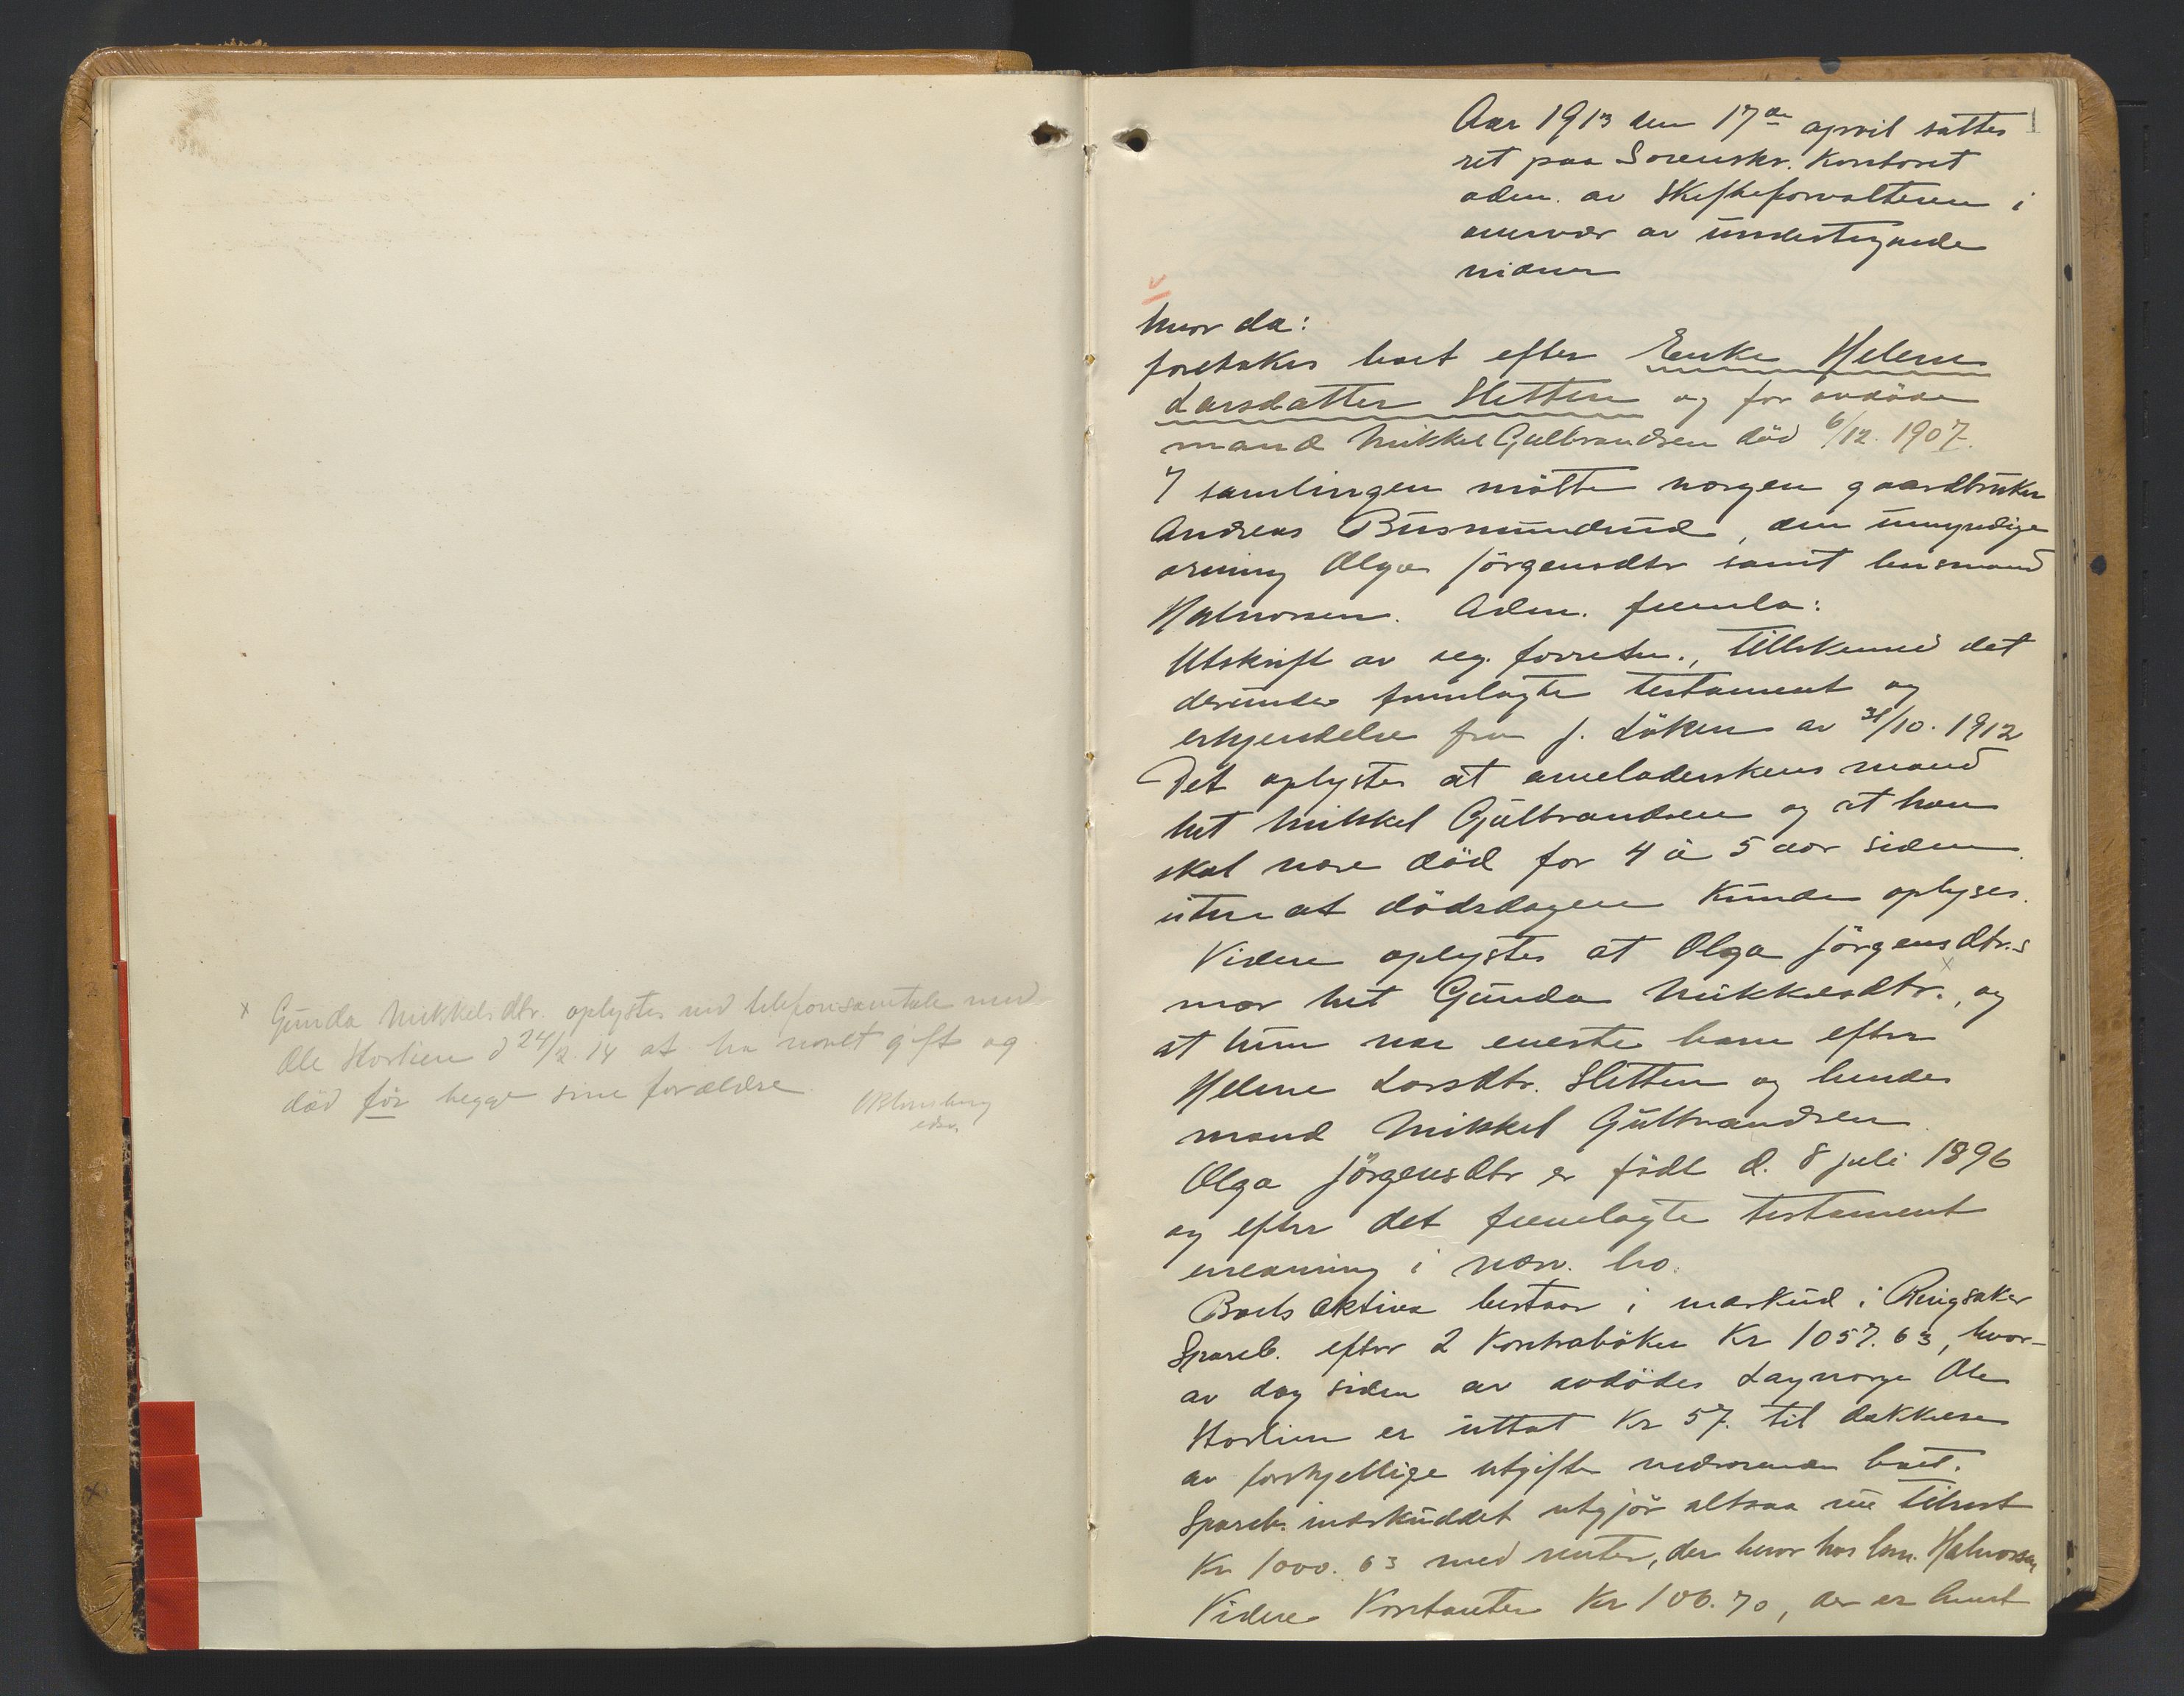 x Gunda Mikkelsdtr. oplystes ved telefonsamtale med
Ole Storlien d 24/2 14 at ha været gift og
død før begge sine forældre
1
Aar 1913 den 17de april sattes
ret paa Sorenskr. Kontoret
adm. av Skifteforvalteren i
overvær av undertegnede
vidner
hvor da:
foretokes boet efter Enke Helene
Larsdatter Sletten og før avdøde
mand Mikkel Gulbrandsen død 6/12. 1907.
I samlingen møtte vergen gaardbruker
Andreas Busmundrud, den umyndige
arving Olga Jörgensdtr samt lensmand
Halvorsen. Adm. fremla:
Utskrift av reg. forretn., tillikemed det
derunder fremlagte testament og
erkjendelse fra J. Löken av 31/10. 1912
Det oplystes at arveladerskens mand
het Mikkel Gulbrandsen og at han
skal være död for 4 à 5 aar siden
uten at dödsdagen kunde oplyses.
Videre oplystes at Olga Jörgensdtr.s
mor het Gunda Mikkelsdtr. x, og
at hun var eneste barn efter
Helene Larsdtr. Sletten og hendes
mand Mikkel Gulbrandsen
Olga Jörgensdtr er född d. 8 juli 1896
og efter det fremlagte testament
enearving i nærv. bo.
Boets aktiva bestaar i indskud i Ringsaker
Spareb. efter 2 Kontraböker Kr 1057.63, hvor-
av dog siden av avdödes Lagverge Ole
Storlien er uttat Kr 57. til dækkelse
av forskjellige utgifter vedrörende boet.
Spareb. indskuddet utgjör altsaa nu tilrest
Kr 1000.63 med renter, der beror hos lm. Halvorsen
Videre Kontanter Kr 106.70, der er